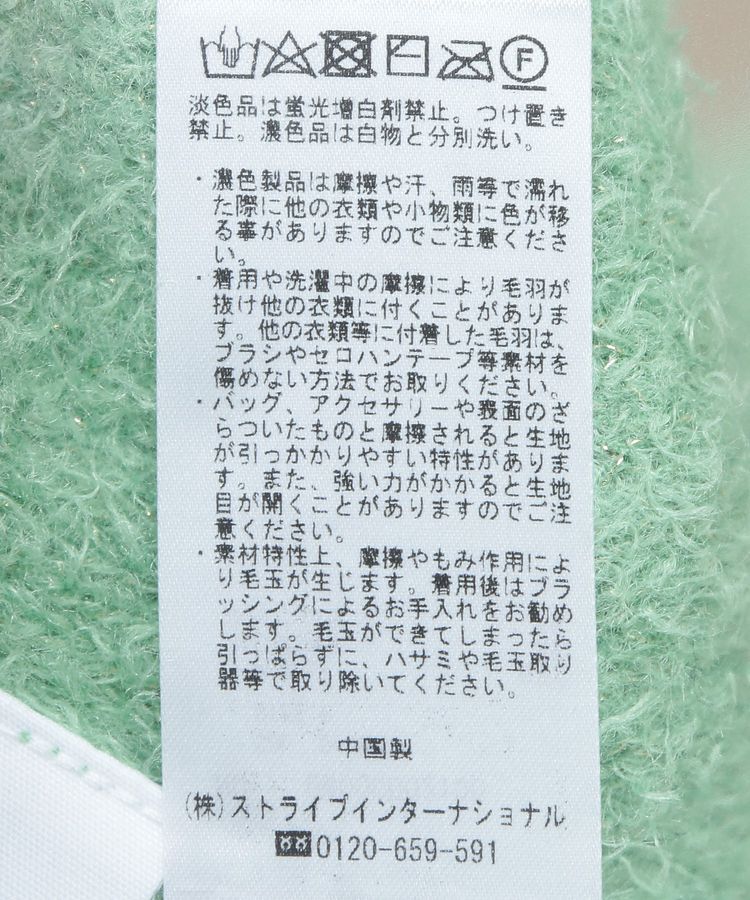 淡色品は蛍光増白剤禁止。つけ置き
禁止。濃色品は白物と分別洗い。
・濃色製品は摩擦や汗、雨等で濡れ
た際に他の衣類や小物類に色が移
る事がありますのでご注意くださ
い。
・着用や洗濯中の摩擦により毛羽が
抜け他の衣類に付くことがありま
す。他の衣類等に付着した毛羽は、
ブラシやセロハンテープ等素材を
傷めない方法でお取りください。
・バッグ、アクセサリーや表面のざ
らついたものと摩擦されると生地
が引っかかりやすい特性がありま
す。また、強い力がかかると生地
目が開くことがありますのでご注
意ください。
・素材特性上、摩擦やもみ作用によ
り毛玉が生じます。着用後はブラ
ッシングによるお手入れをお勧め
します。毛玉ができてしまったら
引っぱらずに、ハサミや毛玉取り
器等で取り除いてください。
中国製
(株)ストライプインターナショナル
0120-659-591